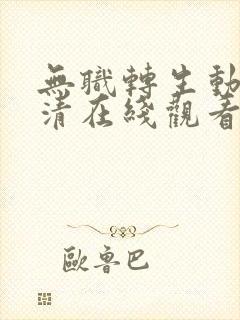 無職轉生動
清在綫觀看
歐魯巴